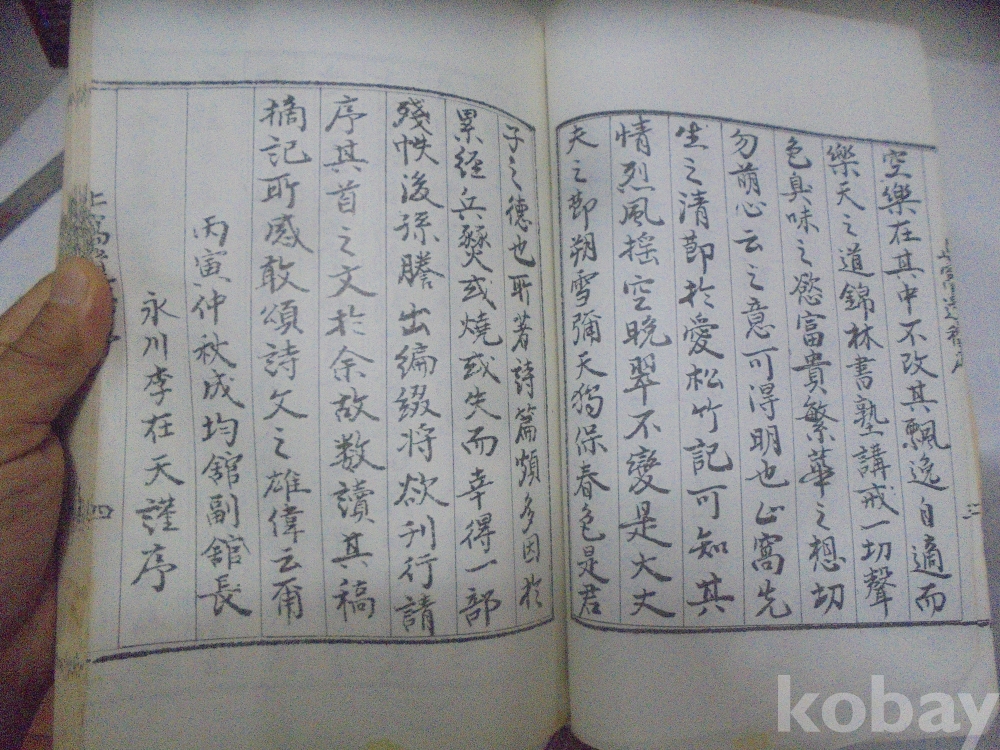 空樂在其中不改其飄逸自適而
樂天之道錦林書塾講戒一切聲
色臭味之慾富貴繁華之想切
勿萌心云之意可得明也止窩先
生之清節於愛松竹記可知其
情烈風搖空晩翠不變是大丈
夫之節朔雪彌天獨保春色是君
子之德也所著詩篇頗多因於
累經兵燹或燒或失而幸得一部
殘帙後孫謄出編綴將欲刊行請
序其首之文於余故数讀其稿
摘記所感敢頌詩文之雄偉云爾
丙寅仲秋成均館副館長
永川李在天謹序
三
四
kobay